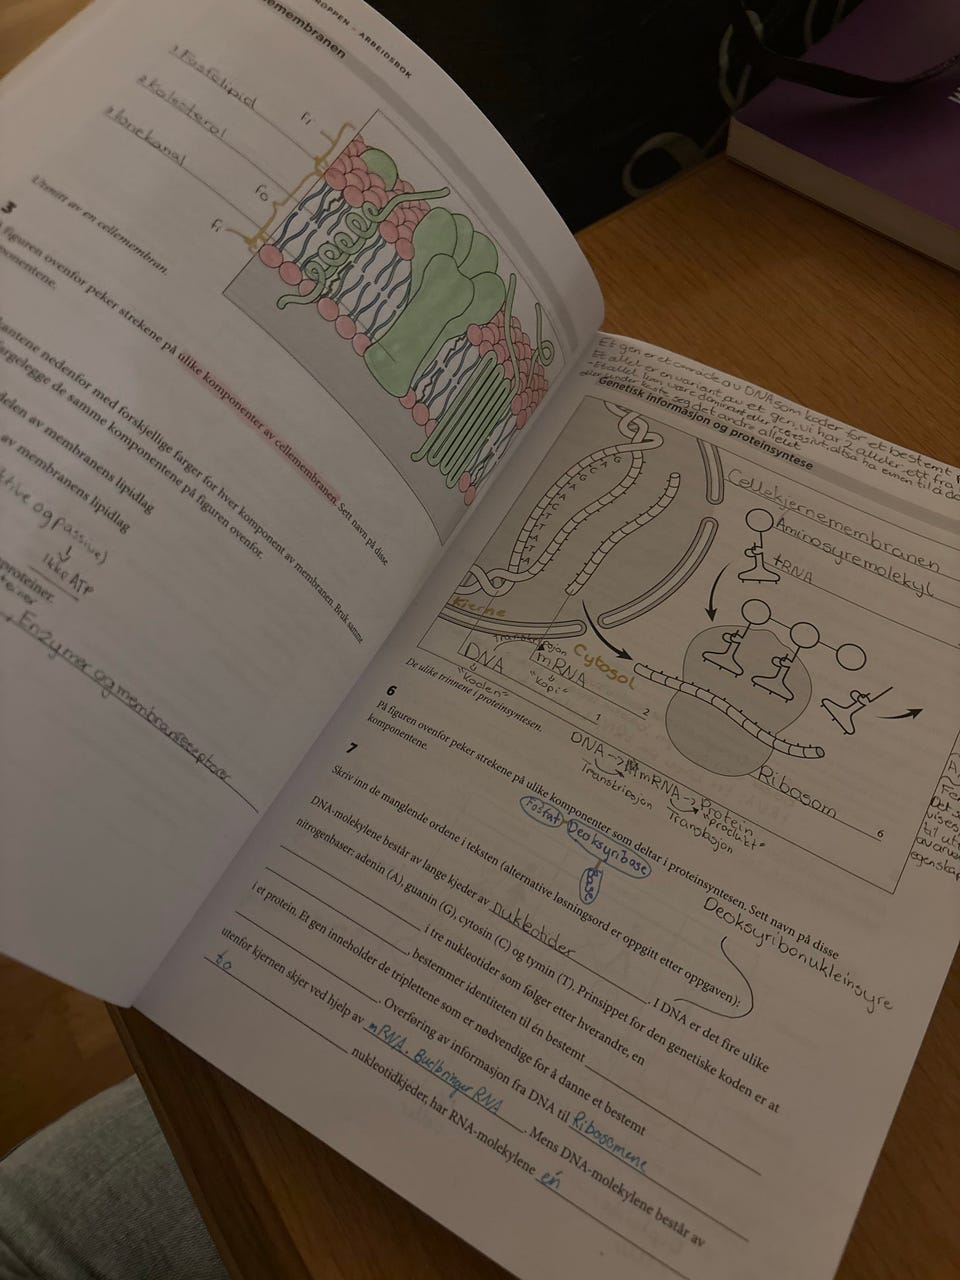 ROPPEN – ARBEIDSBOK
lemembranen
1 Fosfolipid
2 Kolesterol
3 Ionekanal
Fi
Fo
Fi
Utsnitt av en cellemembran.
3
figuren ovenfor peker strekene på ulike komponenter av cellemembranen. Sett navn på disse
ponentene.
antene nedenfor med forskjellige farger for hver komponent av membranen. Bruk samme
argelegge de samme komponentene på figuren ovenfor.
delen av membranens lipidlag
av membranens lipidlag
ktive og passive)
↓
ikke ATP
proteiner.
Enzymer og membranreseptorer
Et gen er et område av DNA som koder for et bestemt
Et allel er en variant av et gen, vi har 2 alleler, ett fra
- Et allel kan være dominant eller recessivt, altså ha evnen til å do
eller underkaste seg det andre allelet
Genetisk informasjon og proteinsyntese
Cellekjernemembranen
Aminosyremolekyl
tRNA
Kjerne
Cytosol
Transkripsjon
DNA
↓
"Koden"
mRNA
↓
"Kopi"
1
2
Ribosom
6
De ulike trinnene i proteinsyntesen.
DNA → mRNA → Protein
Transkripsjon
"Produkt"
Translasjon
6
På figuren ovenfor peker strekene på ulike komponenter som deltar i proteinsyntesen. Sett navn på disse
komponentene.
7
Fosfat
Deoksyribose
Base
Skriv inn de manglende ordene i teksten (alternative løsningsord er oppgitt etter oppgaven):
Deoksyribonukleinsyre
DNA-molekylene består av lange kjeder av nukleotider. I DNA er det fire ulike
nitrogenbaser: adenin (A), guanin (G), cytosin (C) og tymin (T). Prinsippet for den genetiske koden er at
i tre nukleotider som følger etter hverandre, en
, bestemmer identiteten til én bestemt
i et protein. Et gen inneholder de triplettene som er nødvendige for å danne et bestemt
. Overføring av informasjon fra DNA til Ribosomene
utenfor kjernen skjer ved hjelp av mRNA. Budbringer RNA. Mens DNA-molekylene består av
to nukleotidkjeder, har RNA-molekylene én